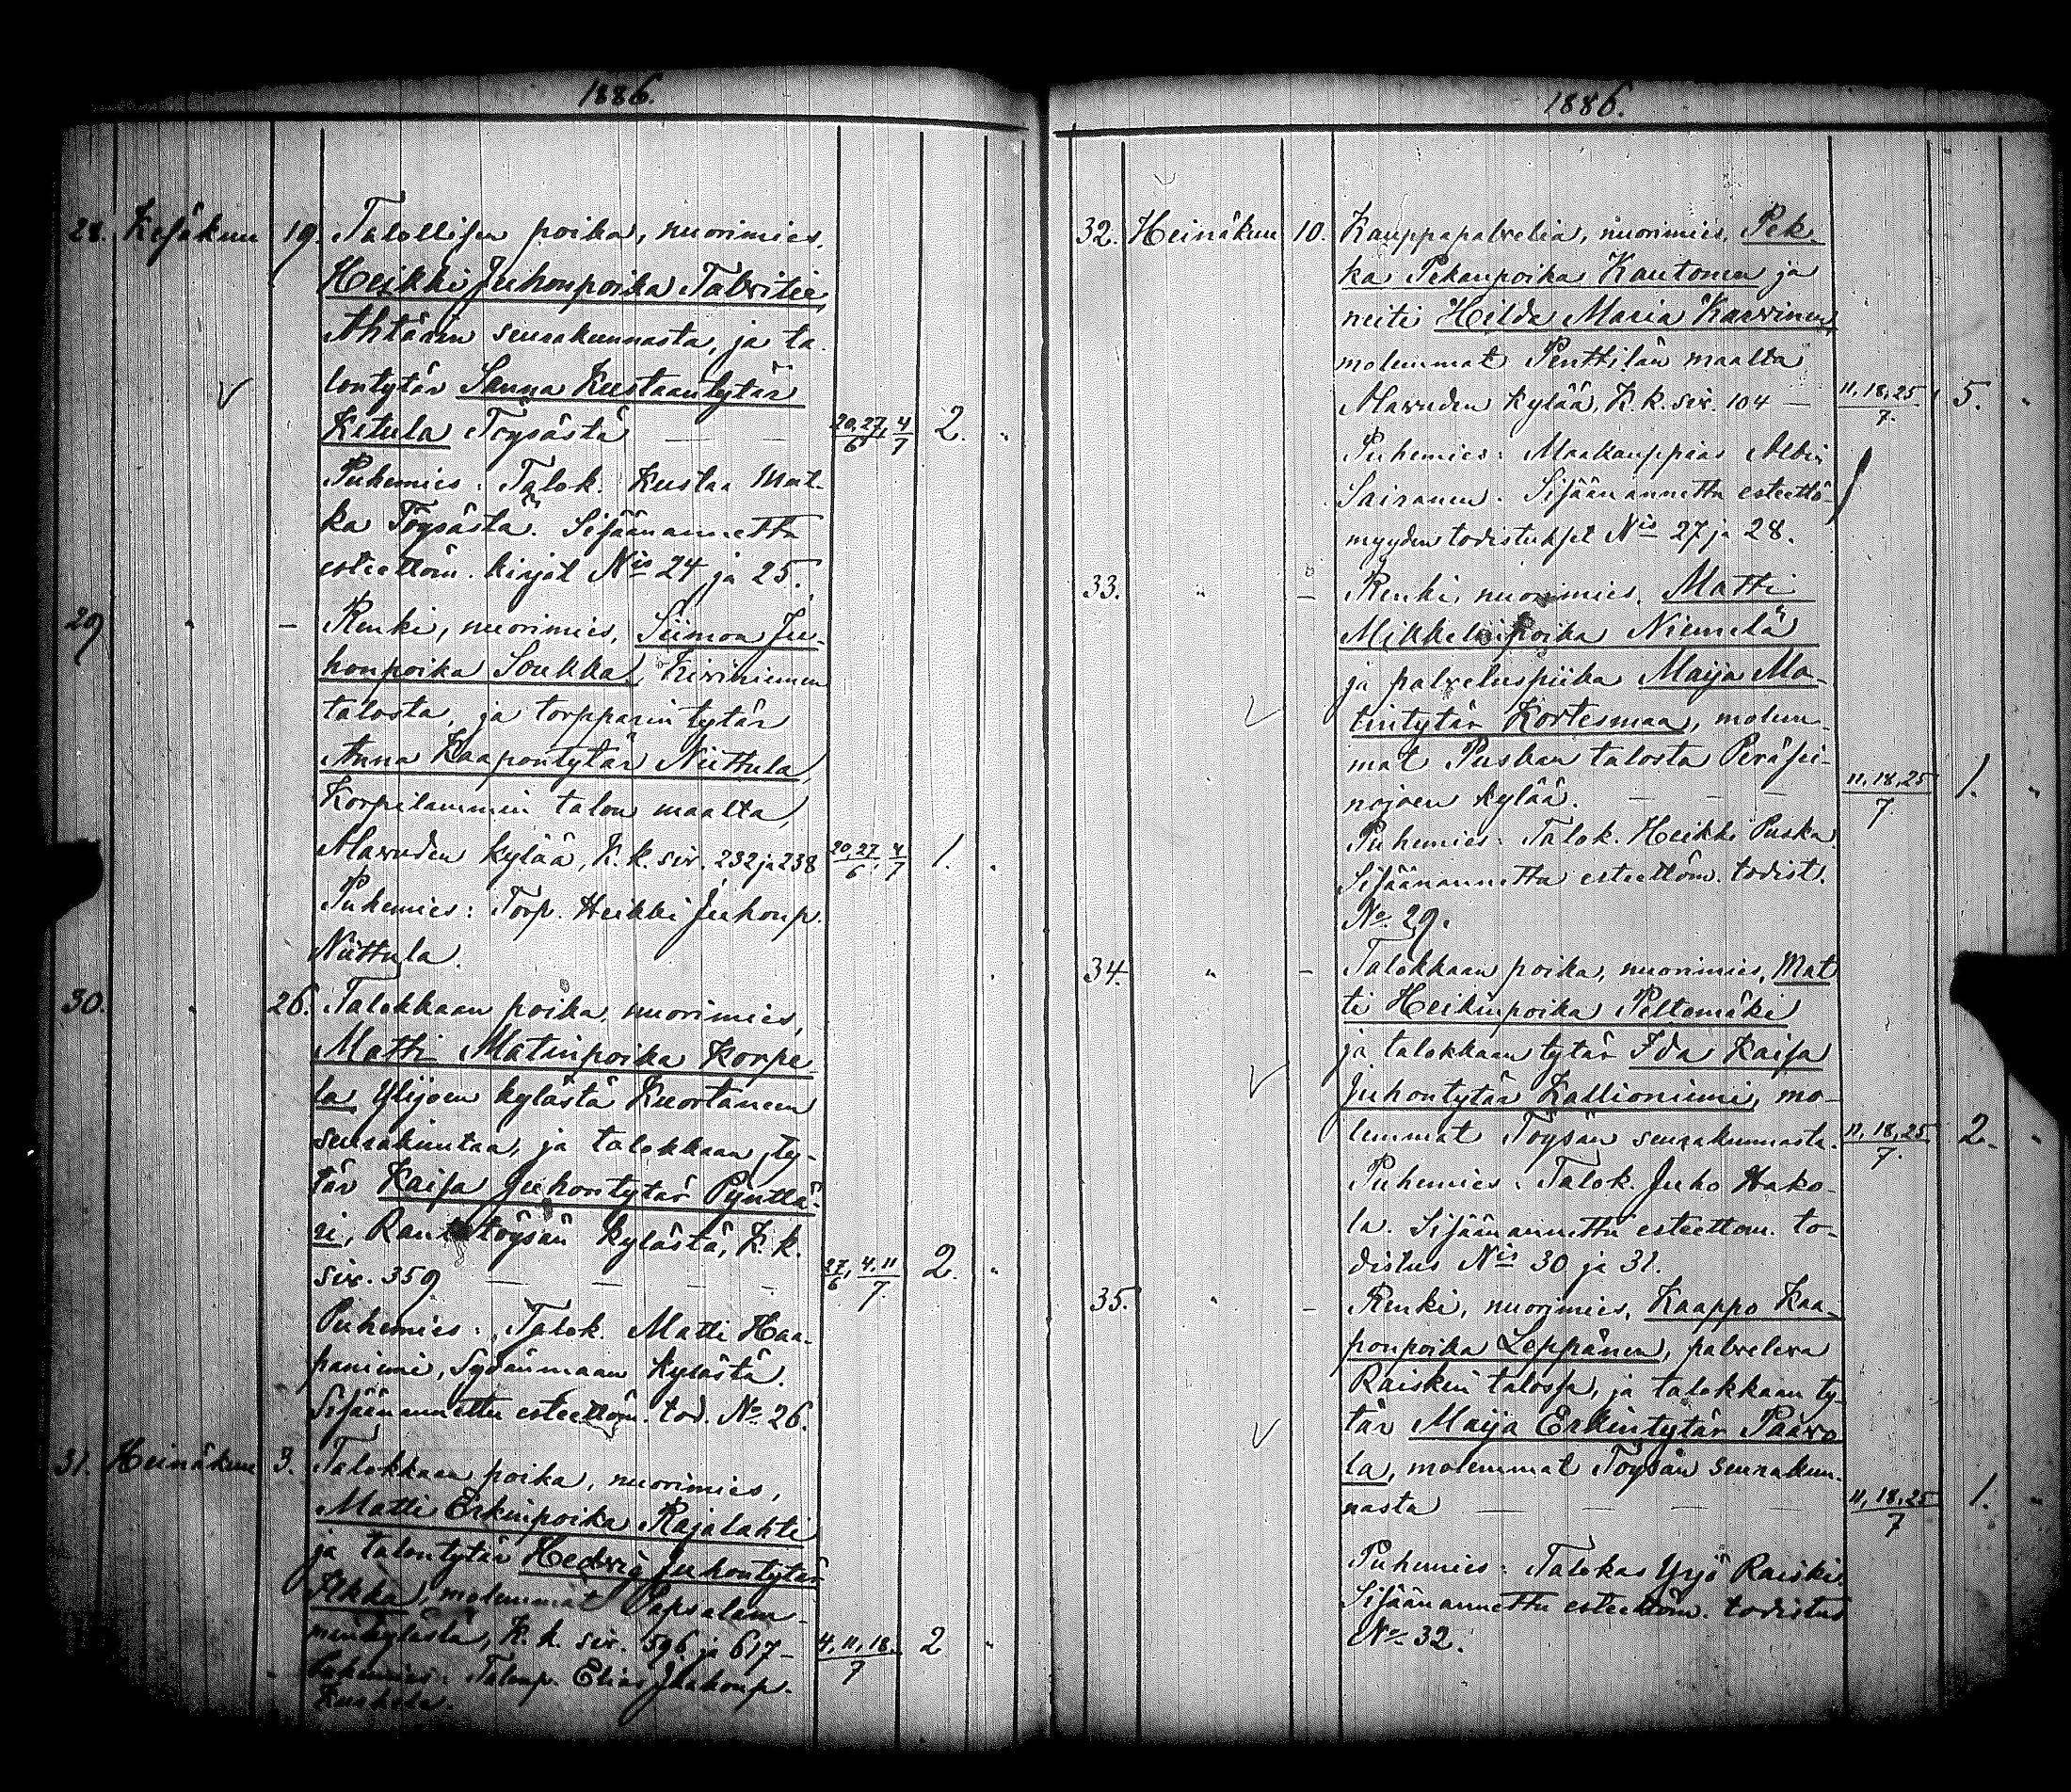 1886.
28. Kesäkuu 19. Talollisen poika, nuorimies,
Heikki Juhonpoika Talvitie,
Ahtärin seurakunnasta, ja ta-
lontytär Sanna Kustaantytär
Ketula Töysästä — — 20,27/6, 4/7 2. "
Puhemies: Talok. Kustaa Mat-
ka Töysästä. Sisäänannettu
esteettöm. kirjat Nis 24 ja 25.
29 " — Renki, nuorimies, Siimon Ju-
honpoika Soukka, Kiviniemen
talosta, ja torpparin tytär
Anna Kaapontytär Niittula,
Korpilammin talon maalta,
Alavuden kylää, K. k. siv. 232 ja 238 20,27/6, 4/7 1. "
Puhemies: Torp. Heikki Juhonp.
Niittula.
30. " 26. Talokkaan poika, nuorimies,
Matti Matinpoika Korpe-
la Ylijoen kylästä Kuortaneen
seurakuntaa, ja talokkaan ty-
tär Kaisa Juhontytär Pynttä-
ri, Rantatöysän kylästä, K. k.
siv. 359 — — — — 27/6, 4,11/7. 2. "
Puhemies: Talok. Matti Haa-
paniemi, Sydänmaan kylästä.
Sisäänannettu esteettöm. tod. No. 26.
31. Heinäkuu 3. Talokkaan poika, nuorimies,
Matti Erkinpoika Rajalahti
ja talontytär Hedvig Juhontytär
Ilkka, molemmat Sapsalam-
minkylästä, K. k. siv. 596 ja 617 — 4,11,18./7 2 "
Puhemies: Talonp. Elias Juhonp.
1886.
32. Heinäkuu 10. Kauppapalvelia, nuorimies, Pek-
ka Pekanpoika Kautonen ja
neiti Hilda Maria Karvinen,
molemmat Penttilän maalta
Alavuden kylää, K. k. siv. 104 — 11,18,25/7. 5. "
Puhemies: Maakauppias Albin
Sairanen. Sisäänannettu esteettö-
myyden todistukset Nis 27 ja 28.
33. " — Renki, nuorimies, Matti
Mikkelinpoika Niemelä
ja palveluspiika Maija Ma-
tintytär Kortesmaa, molem-
mat Puskan talosta Peräsei-
nojoen kylää. — — — 11,18,25/7. 1. "
Puhemies: Talok. Heikki Puska.
Sisäänannettu esteettöm. todist.
No. 29.
34. " — Talokkaan poika, nuorimies, Mat
ti Heikinpoika Peltomäki
ja talokkaan tytär Ida Kaisa
Juhontytär Kallioniemi, mo-
lemmat Töysän seurakunnasta. 11,18,25/7. 2. "
Puhemies: Talok. Juho Hako-
la. Sisäänannettu esteettöm. to-
distus Nis 30 ja 31.
35. " — Renki, nuorimies, Kaappo Kaa-
ponpoika Leppänen, palveleva
Raiskin talossa, ja talokkaan ty-
tär Maija Erkintytär Paavo
la, molemmat Töysän seurakun-
nasta — — — — 11,18,25/7 1. "
Puhemies: Talokas Yrjö Raiski.
Sisäänannettu esteettöm. todistus
No. 32.